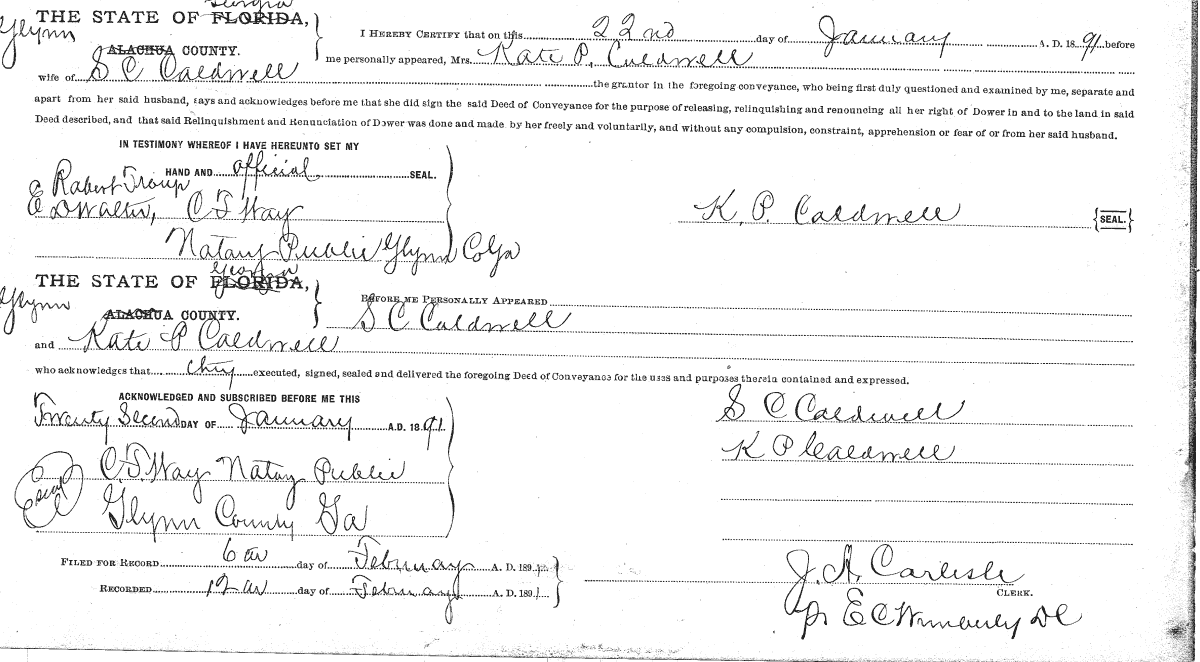 Georgia
THE STATE OF FLORIDA,
Glynn
ALACHUA COUNTY.
I HEREBY CERTIFY that on this 22nd day of January A. D. 1891 before
me personally appeared, Mrs. Kate P. Caldwell
wife of S C Caldwell the grantor in the foregoing conveyance, who being first duly questioned and examined by me, separate and
apart from her said husband, says and acknowledges before me that she did sign the said Deed of Conveyance for the purpose of releasing, relinquishing and renouncing all her right of Dower in and to the land in said
Deed described, and that said Relinquishment and Renunciation of Dower was done and made by her freely and voluntarily, and without any compulsion, constraint, apprehension or fear of or from her said husband.
IN TESTIMONY WHEREOF I HAVE HEREUNTO SET MY
HAND AND official SEAL.
Robert Troup
E D Walter, C T Way
K. P. Caldwell {SEAL.}
Notary Public Glynn Co Ga
Georgia
THE STATE OF FLORIDA,
Glynn
ALACHUA COUNTY.
BEFORE ME PERSONALLY APPEARED
S C Caldwell
and Kate P Caldwell
who acknowledges that they executed, signed, sealed and delivered the foregoing Deed of Conveyance for the uses and purposes therein contained and expressed.
ACKNOWLEDGED AND SUBSCRIBED BEFORE ME THIS
Twenty Second DAY OF January A.D. 1891
S C Caldwell
K P Caldwell
C. T. Way Notary Public
seal
Glynn County Ga
FILED FOR RECORD 6th day of February A. D. 1891
RECORDED 12th day of February A. D. 1891
J. A. Carlisle
CLERK.
pr E C Wimberly DC